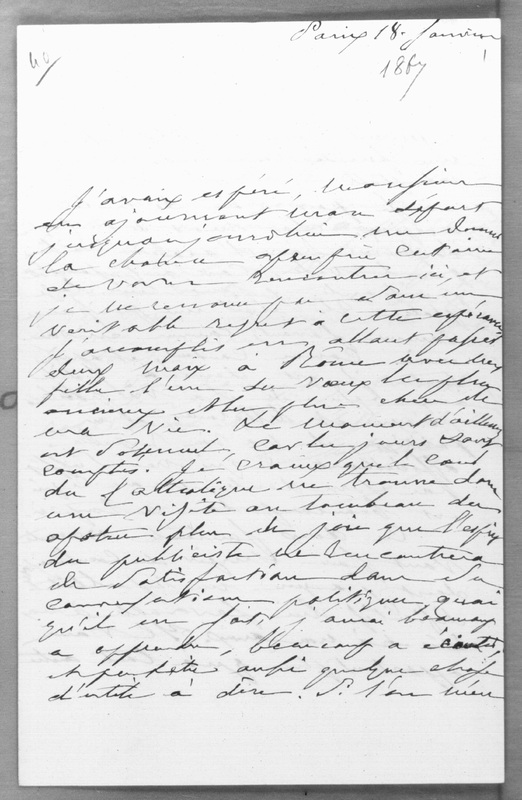 40
Paris 18. Janvier
1867
J'avais espéré, Monsieur
en ajournant mon départ
jusqu'aujourd'hui me donner
la chance presque certaine
de vous rencontrer ici, et
je ne renonce pas sans un
véritable regret à cette espérance
J'accomplis en allant passer
deux mois à Rome avec deux
filles l'un des voeux les plus
anciens et les plus chers de
ma vie. Le moment d'ailleurs
est solennel, car les jours sont
comptés. Je crains que le coeur
du catholique ne trouve dans
une visite au tombeau des
apôtres plus de joie que l'esprit
du publiciste ne rencontrera
de satisfaction dans des
conversations politiques quoi
qu'il en soit, j'aurai beaucoup
à apprendre, beaucoup à écouter,
et peut-être aussi quelque chose
d'utile à dire. Si l'on m'en